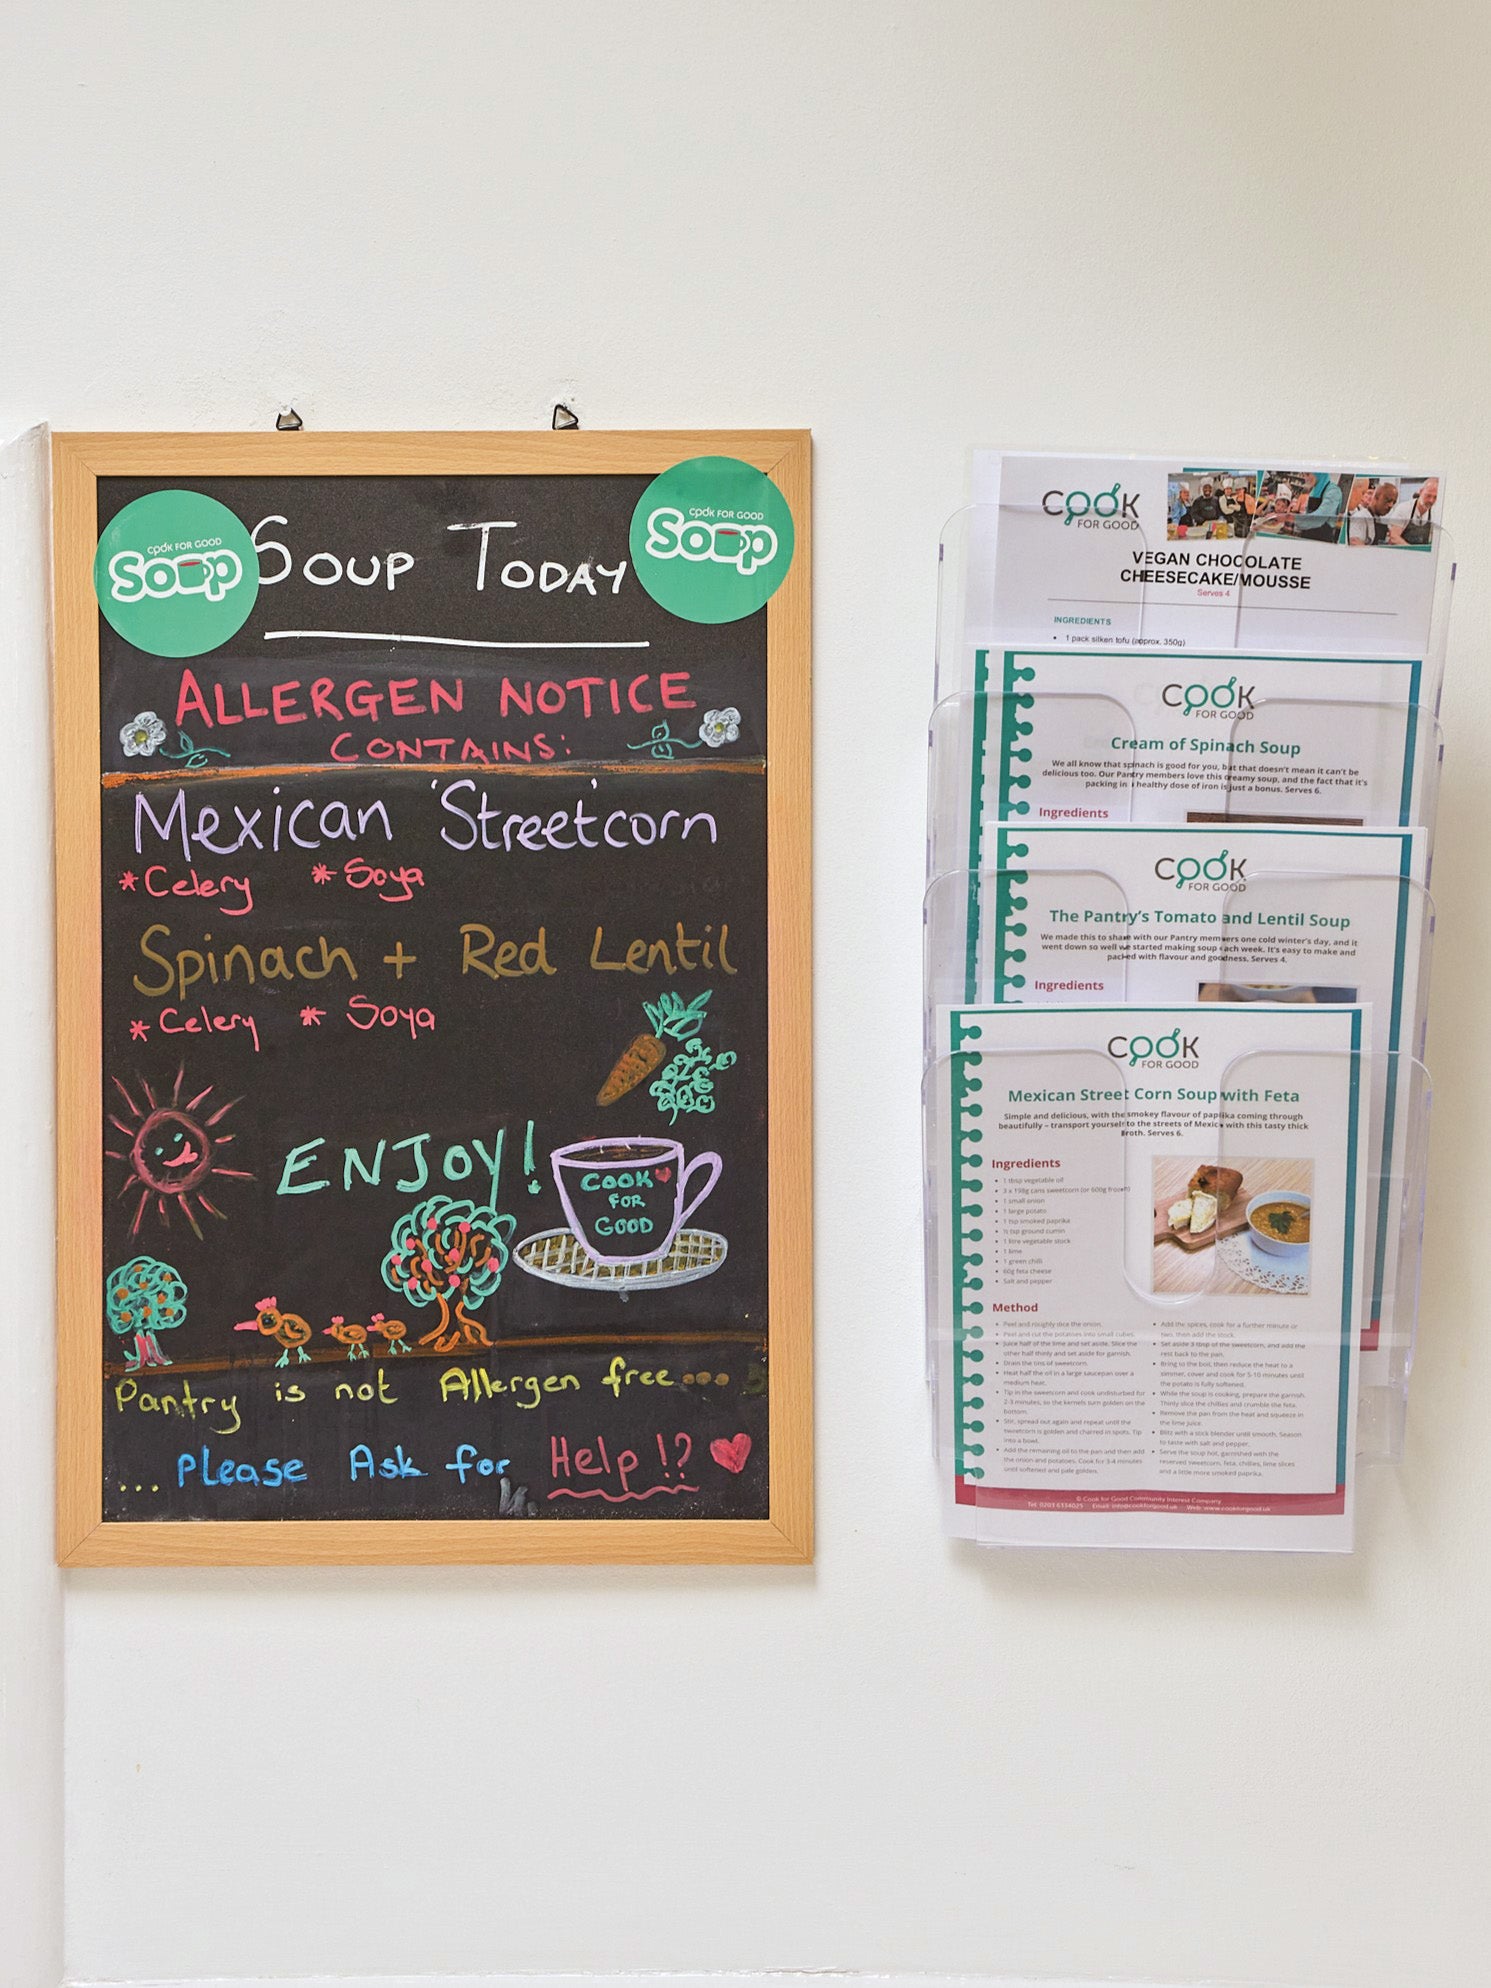 COOK FOR GOOD
Soup
Soup Today
COOK FOR GOOD
Soup
ALLERGEN NOTICE
CONTAINS:
Mexican 'Street' corn
* Celery * Soya
Spinach + Red Lentil
* Celery * Soya
ENJOY!
COOK
FOR
GOOD
Pantry is not Allergen free...
... Please Ask for Help!?
COOK
FOR GOOD
VEGAN CHOCOLATE
CHEESECAKE/MOUSSE
Serves 4
INGREDIENTS
• 1 pack silken tofu (approx. 350g)
COOK
FOR GOOD
Cream of Spinach Soup
We all know that spinach is good for you, but that doesn't mean it can't be
delicious too. Our Pantry members love this creamy soup, and the fact that it's
packing in a healthy dose of iron is just a bonus. Serves 6.
Ingredients
COOK
FOR GOOD
The Pantry's Tomato and Lentil Soup
We made this to share with our Pantry members one cold winter's day, and it
went down so well we started making soup each week. It's easy to make and
packed with flavour and goodness. Serves 4.
Ingredients
COOK
FOR GOOD
Mexican Street Corn Soup with Feta
Simple and delicious, with the smokey flavour of paprika coming through
beautifully – transport yourself to the streets of Mexico with this tasty thick
broth. Serves 6.
Ingredients
• 1 tbsp vegetable oil
• 3 x 198g cans sweetcorn (or 600g frozen)
• 1 small onion
• 1 large potato
• 1 tsp smoked paprika
• ½ tsp ground cumin
• 1 litre vegetable stock
• 1 lime
• 1 green chilli
• 60g feta cheese
• Salt and pepper
Method
• Peel and roughly dice the onion.
• Peel and cut the potatoes into small cubes.
• Juice half of the lime and set aside. Slice the
other half thinly and set aside for garnish.
• Drain the tins of sweetcorn.
• Heat half the oil in a large saucepan over a
medium heat.
• Tip in the sweetcorn and cook undisturbed for
2-3 minutes, so the kernels turn golden on the
bottom.
• Stir, spread out again and repeat until the
sweetcorn is golden and charred in spots. Tip
into a bowl.
• Add the remaining oil to the pan and then add
the onion and potatoes. Cook for 3-4 minutes
until softened and pale golden.
• Add the spices, cook for a further minute or
two, then add the stock.
• Set aside 3 tbsp of the sweetcorn, and add the
rest back to the pan.
• Bring to the boil, then reduce the heat to a
simmer, cover and cook for 5-10 minutes until
the potato is fully softened.
• While the soup is cooking, prepare the garnish.
Thinly slice the chillies and crumble the feta.
• Remove the pan from the heat and squeeze in
the lime juice.
• Blitz with a stick blender until smooth. Season
to taste with salt and pepper.
• Serve the soup hot, garnished with the
reserved sweetcorn, feta, chillies, lime slices
and a little more smoked paprika.
© Cook for Good Community Interest Company
Tel: 0203 6334025 Email: info@cookforgood.uk Web: www.cookforgood.uk